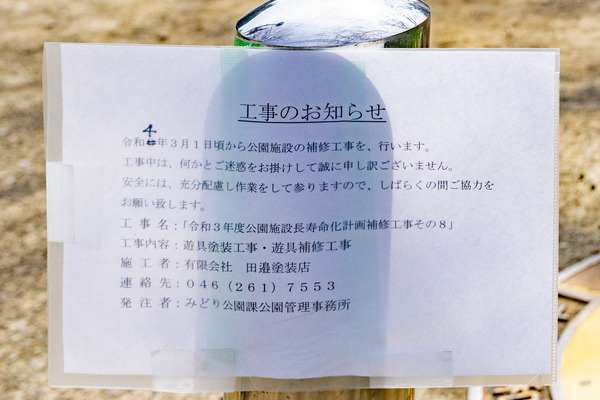 工事のお知らせ
令和4年3月1日頃から公園施設の補修工事を、行います。
工事中は、何かとご迷惑をお掛けして誠に申し訳ございません。
安全には、充分配慮し作業をして参りますので、しばらくの間ご協力を
お願い致します。
工 事 名：「令和3年度公園施設長寿命化計画補修工事その8」
工事内容：遊具塗装工事・遊具補修工事
施 工 者：有限会社　田邉塗装店
連 絡 先：046（261）7553
発 注 者：みどり公園課公園管理事務所